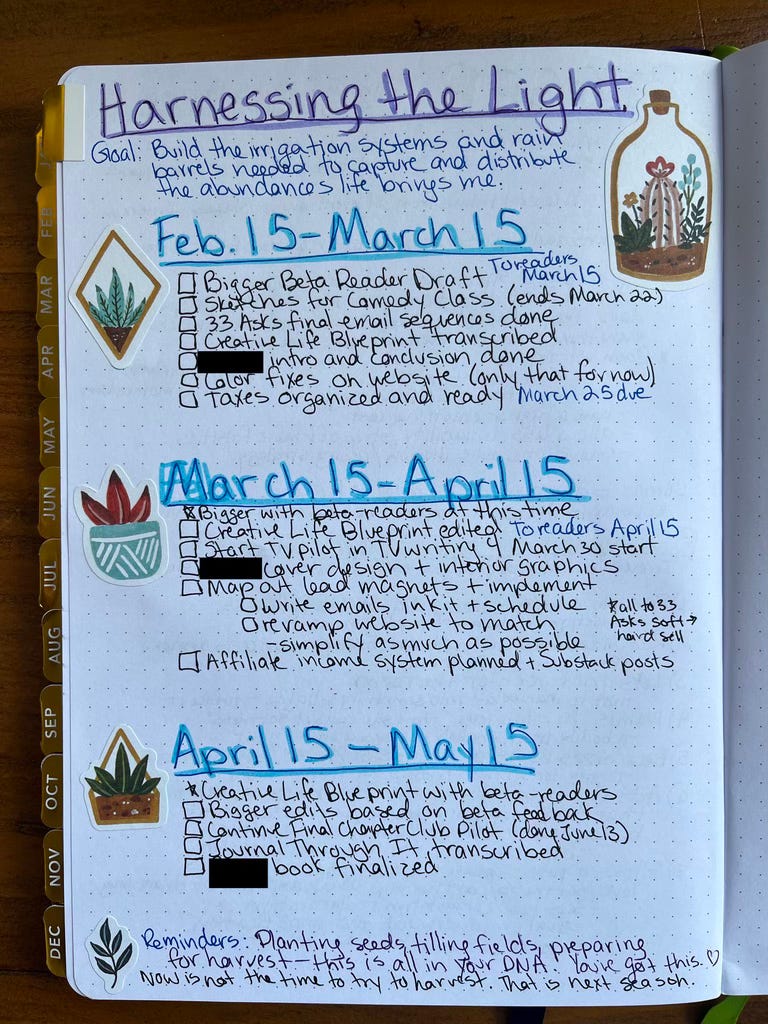 Harnessing the Light
Goal: Build the irrigation systems and rain
barrels needed to capture and distribute
the abundances life brings me.
Feb. 15-March 15
Bigger Beta Reader Draft To readers March 15
Sketches for Comedy Class (ends March 22)
33 Asks final email sequences done
Creative Life Blueprint transcribed
intro and conclusion done
Color fixes on website (only that for now)
Taxes organized and ready March 25 due
March 15-April 15
*Bigger with beta-readers at this time
Creative Life Blueprint edited To readers April 15
Start TV pilot in TV writing March 30 start
cover design + interior graphics
Map out lead magnets + implement
write emails in kit + schedule
revamp website to match
-simplify as much as possible
*all to 33
Asks soft→
hard sell
Affiliate income system planned + Substack posts
April 15-May 15
*Creative Life Blueprint with beta-readers
Bigger edits based on beta feedback
Continue Final Chapter Club Pilot (done June 13)
Journal Through It transcribed
book finalized
Reminders: Planting seeds, tilling fields, preparing
for harvest—this is all in your DNA. You've got this. ♡
Now is not the time to try to harvest. That is next season.
FEB
MAR
APR
MAY
JUN
JUL
AUG
SEP
OCT
NOV
DEC